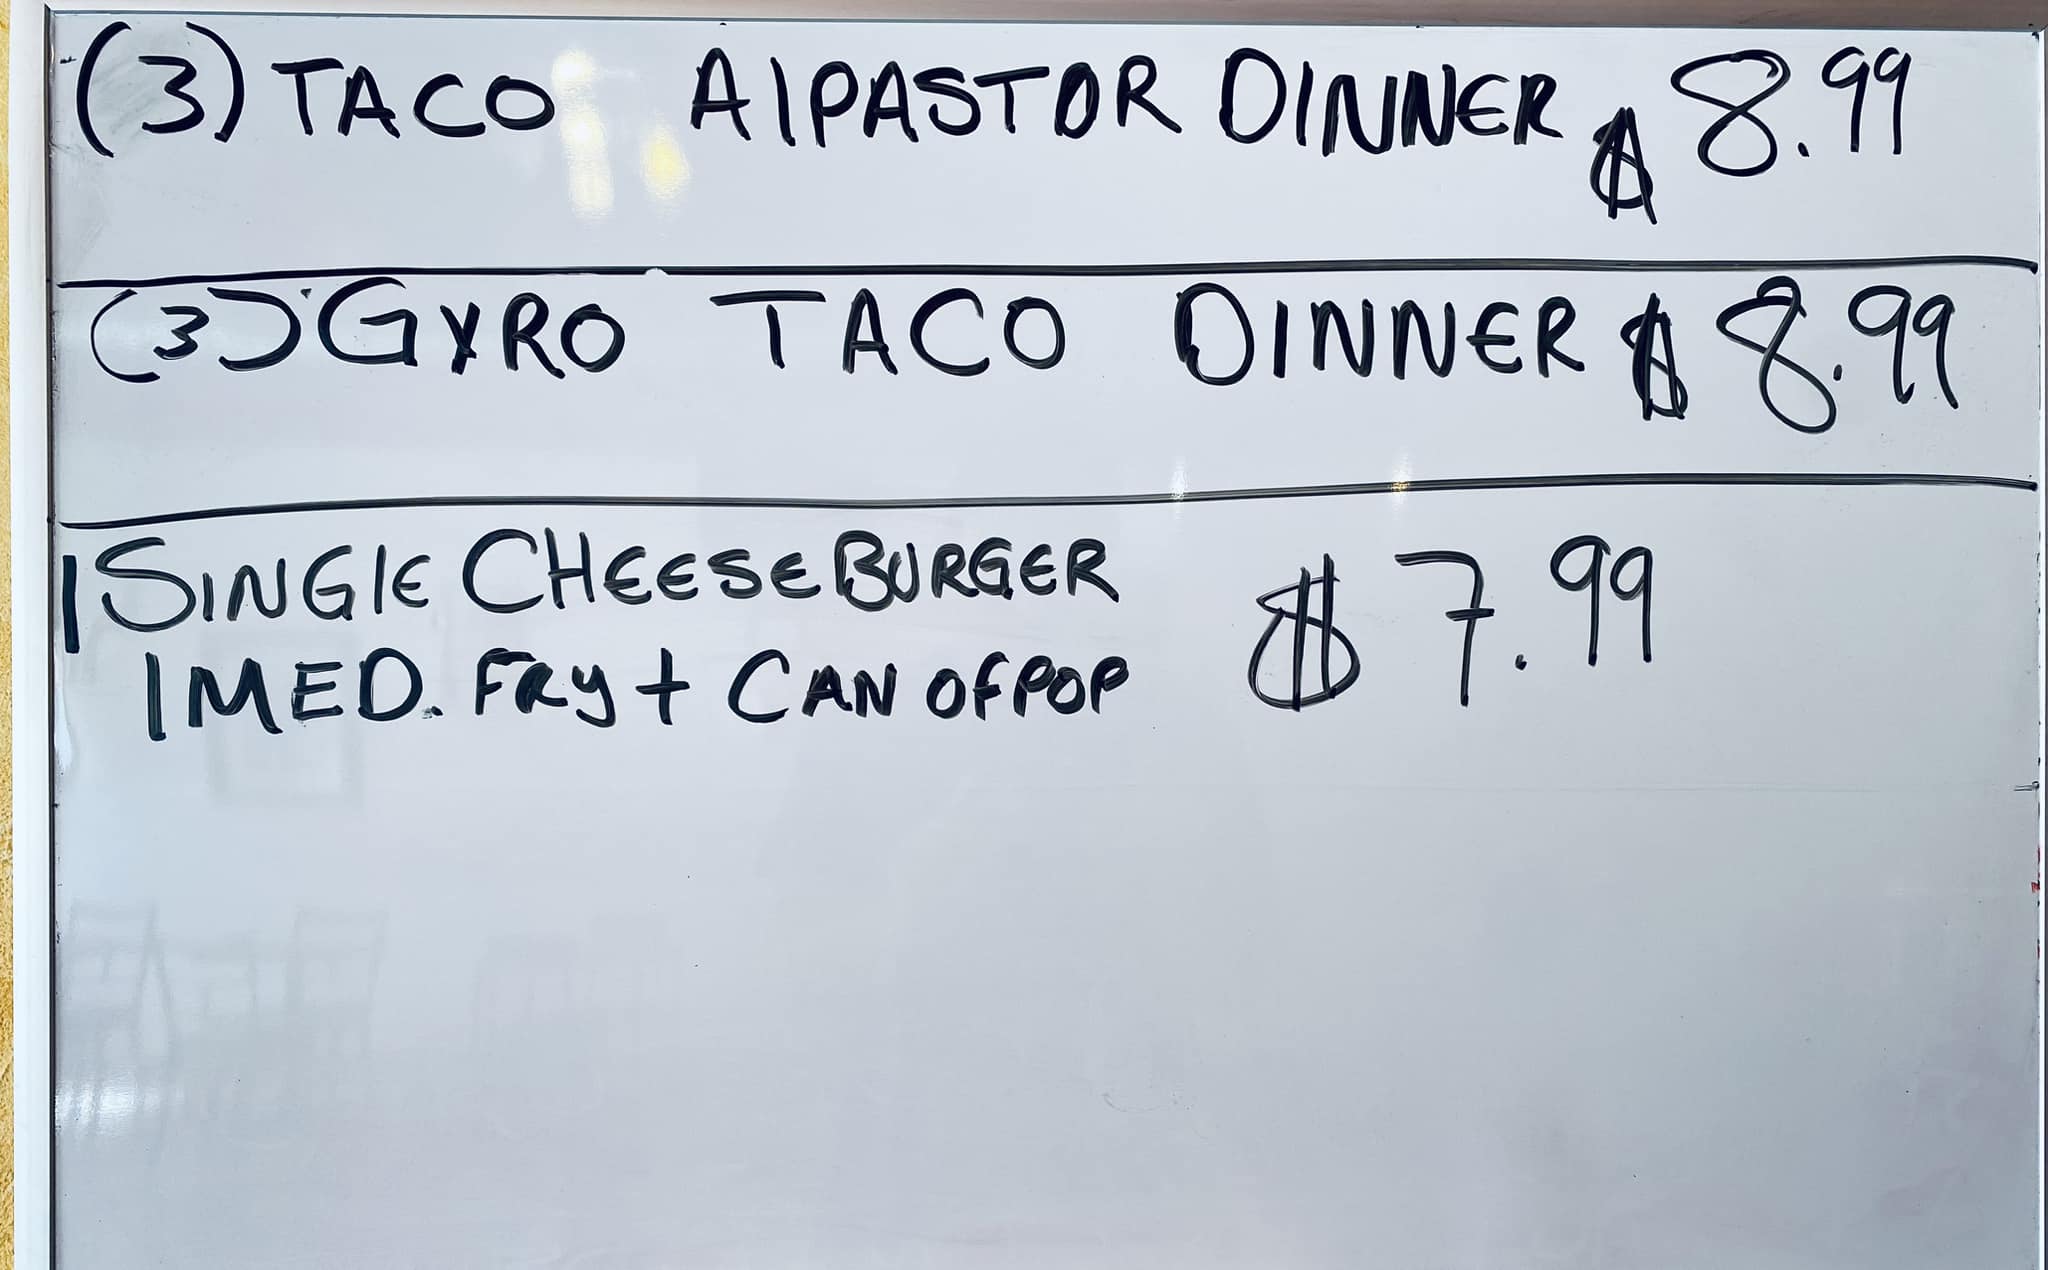 (3) TACO AlPASTOR DINNER $ 8.99
(3) GYRO TACO DINNER $ 8.99
1 SINGlE CHEESE BURGER $ 7.99
1 MED. FRy + CAN OF POP